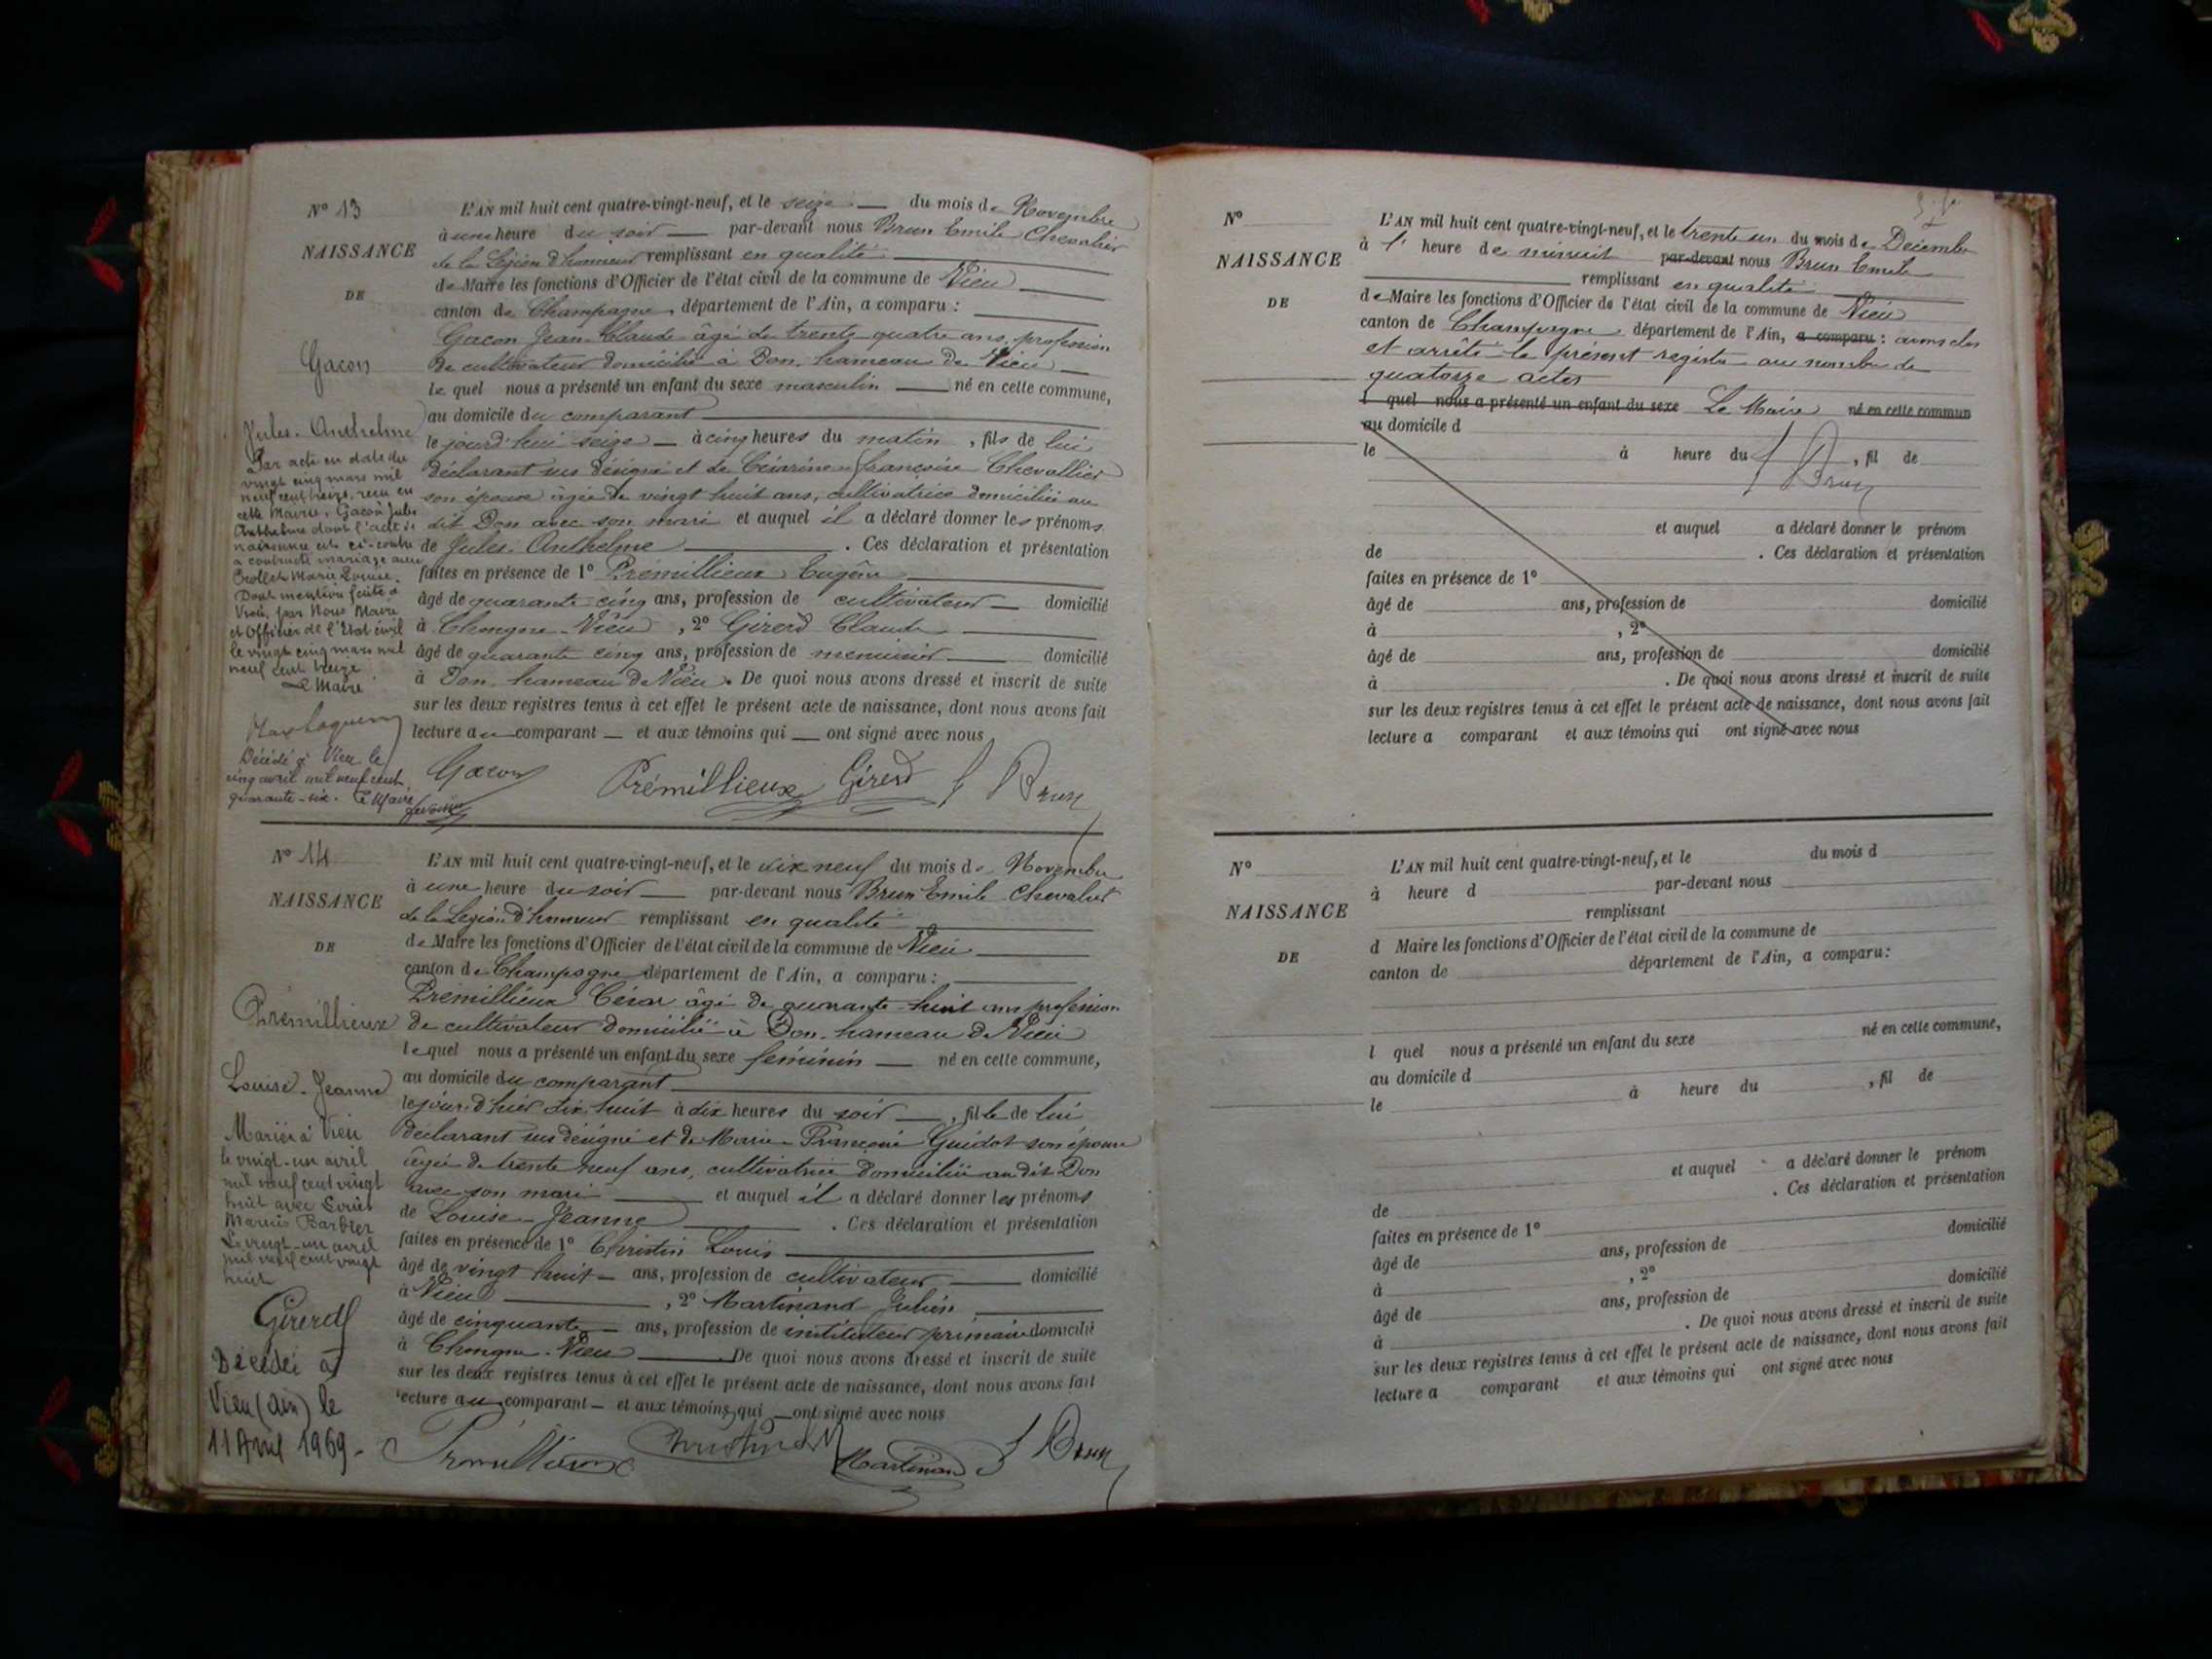 N° 13
NAISSANCE
DE
Gacon
Jules-Anthelme
Par acte en date du
vingt cinq mars mil
neuf cent treize, reçu en
cette Mairie, Gacon Jules
Anthelme dont l'acte de
naissance est ci-contre
a contracté mariage avec
Marie Louise.
Dont mention faite à
Vieu, par Nous Maire
et Officier de l'Etat civil
le vingt cinq mars mil
neuf cent treize
Le Maire
Décédé à Vieu le
cinq avril mil neuf cent
quarante-six. Le Maire
L'AN mil huit cent quatre-vingt-neuf, et le seize du mois de Novembre
à une heure du soir par-devant nous Brun Emile Chevalier
de la Légion d'honneur remplissant en qualité
de Maire les fonctions d'Officier de l'état civil de la commune de Vieu
canton de Champagne, département de l'Ain, a comparu :
Gacon Jean-Claude âgé de trente-quatre ans, profession
de cultivateur domicilié à Don, hameau de Vieu
le quel nous a présenté un enfant du sexe masculin né en cette commune,
au domicile du comparant
le jourd'hui seize à cinq heures du matin, fils de lui
déclarant sus désigné et de Césarine-Françoise Chevallier
son épouse âgée de vingt huit ans, cultivatrice domiciliée au
dit Don avec son mari et auquel il a déclaré donner les prénoms
de Jules-Anthelme . Ces déclaration et présentation
faites en présence de 1° Prémillieux Eugène
âgé de quarante-cinq ans, profession de cultivateur domicilié
à Chongne-Vieu , 2° Girerd Claude
âgé de quarante cinq ans, profession de menuisier domicilié
à Don, hameau de Vieu. De quoi nous avons dressé et inscrit de suite
sur les deux registres tenus à cet effet le présent acte de naissance, dont nous avons fait
lecture au comparant et aux témoins qui ont signé avec nous
Gacon Prémillieux Girerd Brun
N° 14
NAISSANCE
DE
Prémillieux
Louise-Jeanne
Mariée à Vieu
le vingt-un avril
mil neuf cent vingt
huit avec Louis
Marius Barbier
Le vingt-un avril
mil neuf cent vingt
huit
Girerd
Décédée à
Vieu (Ain) le
11 Avril 1969.
L'AN mil huit cent quatre-vingt-neuf, et le dix neuf du mois de Novembre
à une heure du soir par-devant nous Brun Emile Chevalier
de la Légion d'honneur remplissant en qualité
de Maire les fonctions d'Officier de l'état civil de la commune de Vieu
canton de Champagne département de l'Ain, a comparu :
Prémillieux César âgé de quarante-huit ans profession
de cultivateur domicilié à Don, hameau de Vieu
le quel nous a présenté un enfant du sexe féminin né en cette commune,
au domicile du comparant
le jour d'hier dix huit à dix heures du soir , fille de lui
déclarant sus désigné et de Marie-Françoise Guidot son épouse
âgée de trente neuf ans, cultivatrice domiciliée au dit Don
avec son mari et auquel il a déclaré donner les prénoms
de Louise-Jeanne . Ces déclaration et présentation
faites en présence de 1° Christin Louis
âgé de vingt huit ans, profession de cultivateur domicilié
à Vieu , 2° Martinand Julien
âgé de cinquante ans, profession de instituteur primaire domicilié
à Chongne-Vieu De quoi nous avons dressé et inscrit de suite
sur les deux registres tenus à cet effet le présent acte de naissance, dont nous avons fait
lecture au comparant et aux témoins qui ont signé avec nous
Prémillieux Christin Martinand Brun
N°
NAISSANCE
DE
L'AN mil huit cent quatre-vingt-neuf, et le trente un du mois de Décembre
à l' heure de minuit par-devant nous Brun Emile
remplissant en qualité
de Maire les fonctions d'Officier de l'état civil de la commune de Vieu
canton de Champagne, département de l'Ain, a comparu : avons clos
et arrêté le présent registre au nombre de
quatorze actes
l quel nous a présenté un enfant du sexe Le Maire né en cette commun
au domicile d
le à heure du , fil de
Brun
et auquel a déclaré donner le prénom
de . Ces déclaration et présentation
faites en présence de 1°
âgé de ans, profession de domicilié
à , 2°
âgé de ans, profession de domicilié
à . De quoi nous avons dressé et inscrit de suite
sur les deux registres tenus à cet effet le présent acte de naissance, dont nous avons fait
lecture a comparant et aux témoins qui ont signé avec nous
N°
NAISSANCE
DE
L'AN mil huit cent quatre-vingt-neuf, et le du mois d
à heure d par-devant nous
remplissant
d Maire les fonctions d'Officier de l'état civil de la commune de
canton de département de l'Ain, a comparu :
l quel nous a présenté un enfant du sexe né en cette commune,
au domicile d
le à heure du , fil de
et auquel a déclaré donner le prénom
de . Ces déclaration et présentation
faites en présence de 1°
âgé de ans, profession de domicilié
à , 2°
âgé de ans, profession de domicilié
à . De quoi nous avons dressé et inscrit de suite
sur les deux registres tenus à cet effet le présent acte de naissance, dont nous avons fait
lecture a comparant et aux témoins qui ont signé avec nous